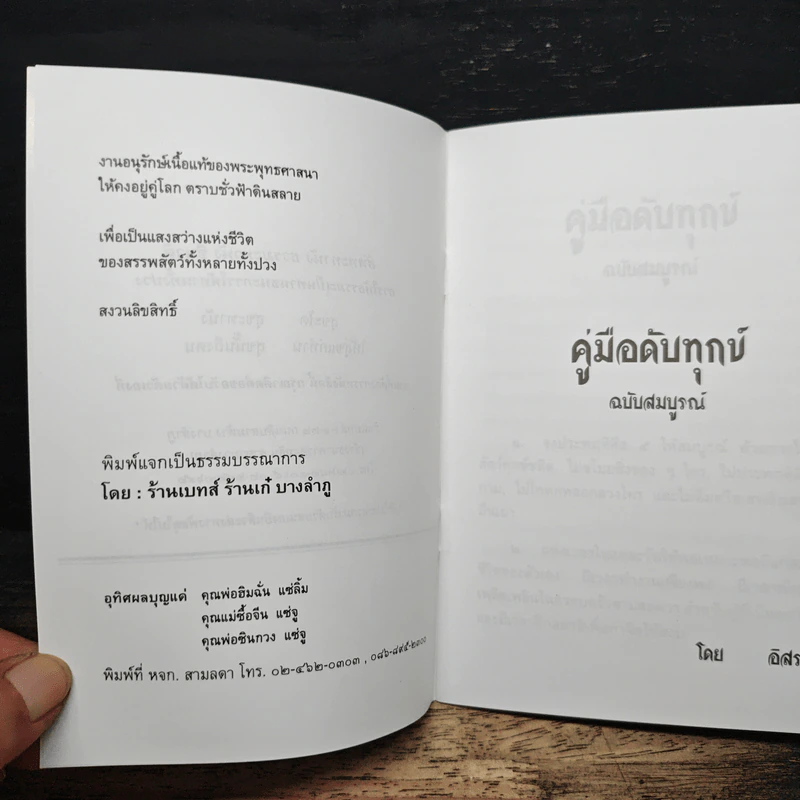 งานอนุรักษ์เนื้อแท้ของพระพุทธศาสนา
ให้คงอยู่คู่โลก ตราบชั่วฟ้าดินสลาย
เพื่อเป็นแสงสว่างแห่งชีวิต
ของสรรพสัตว์ทั้งหลายทั้งปวง
สงวนลิขสิทธิ์
พิมพ์แจกเป็นธรรมบรรณาการ
โดย : ร้านเบทส์ ร้านเก๋ บางลำภู
อุทิศผลบุญแด่ คุณพ่อฮิมฉั่น แซ่ลิ้ม
คุณแม่ซื้อจีน แซ่จู
คุณพ่อซินกวง แซ่จู
พิมพ์ที่ หจก. สามลดา โทร. ๐๒-๔๖๒-๐๓๐๓ , ๐๘๖-๘๙๕-๒๓๐๐
คู่มือดับทุกข์
ฉบับสมบูรณ์
โดย